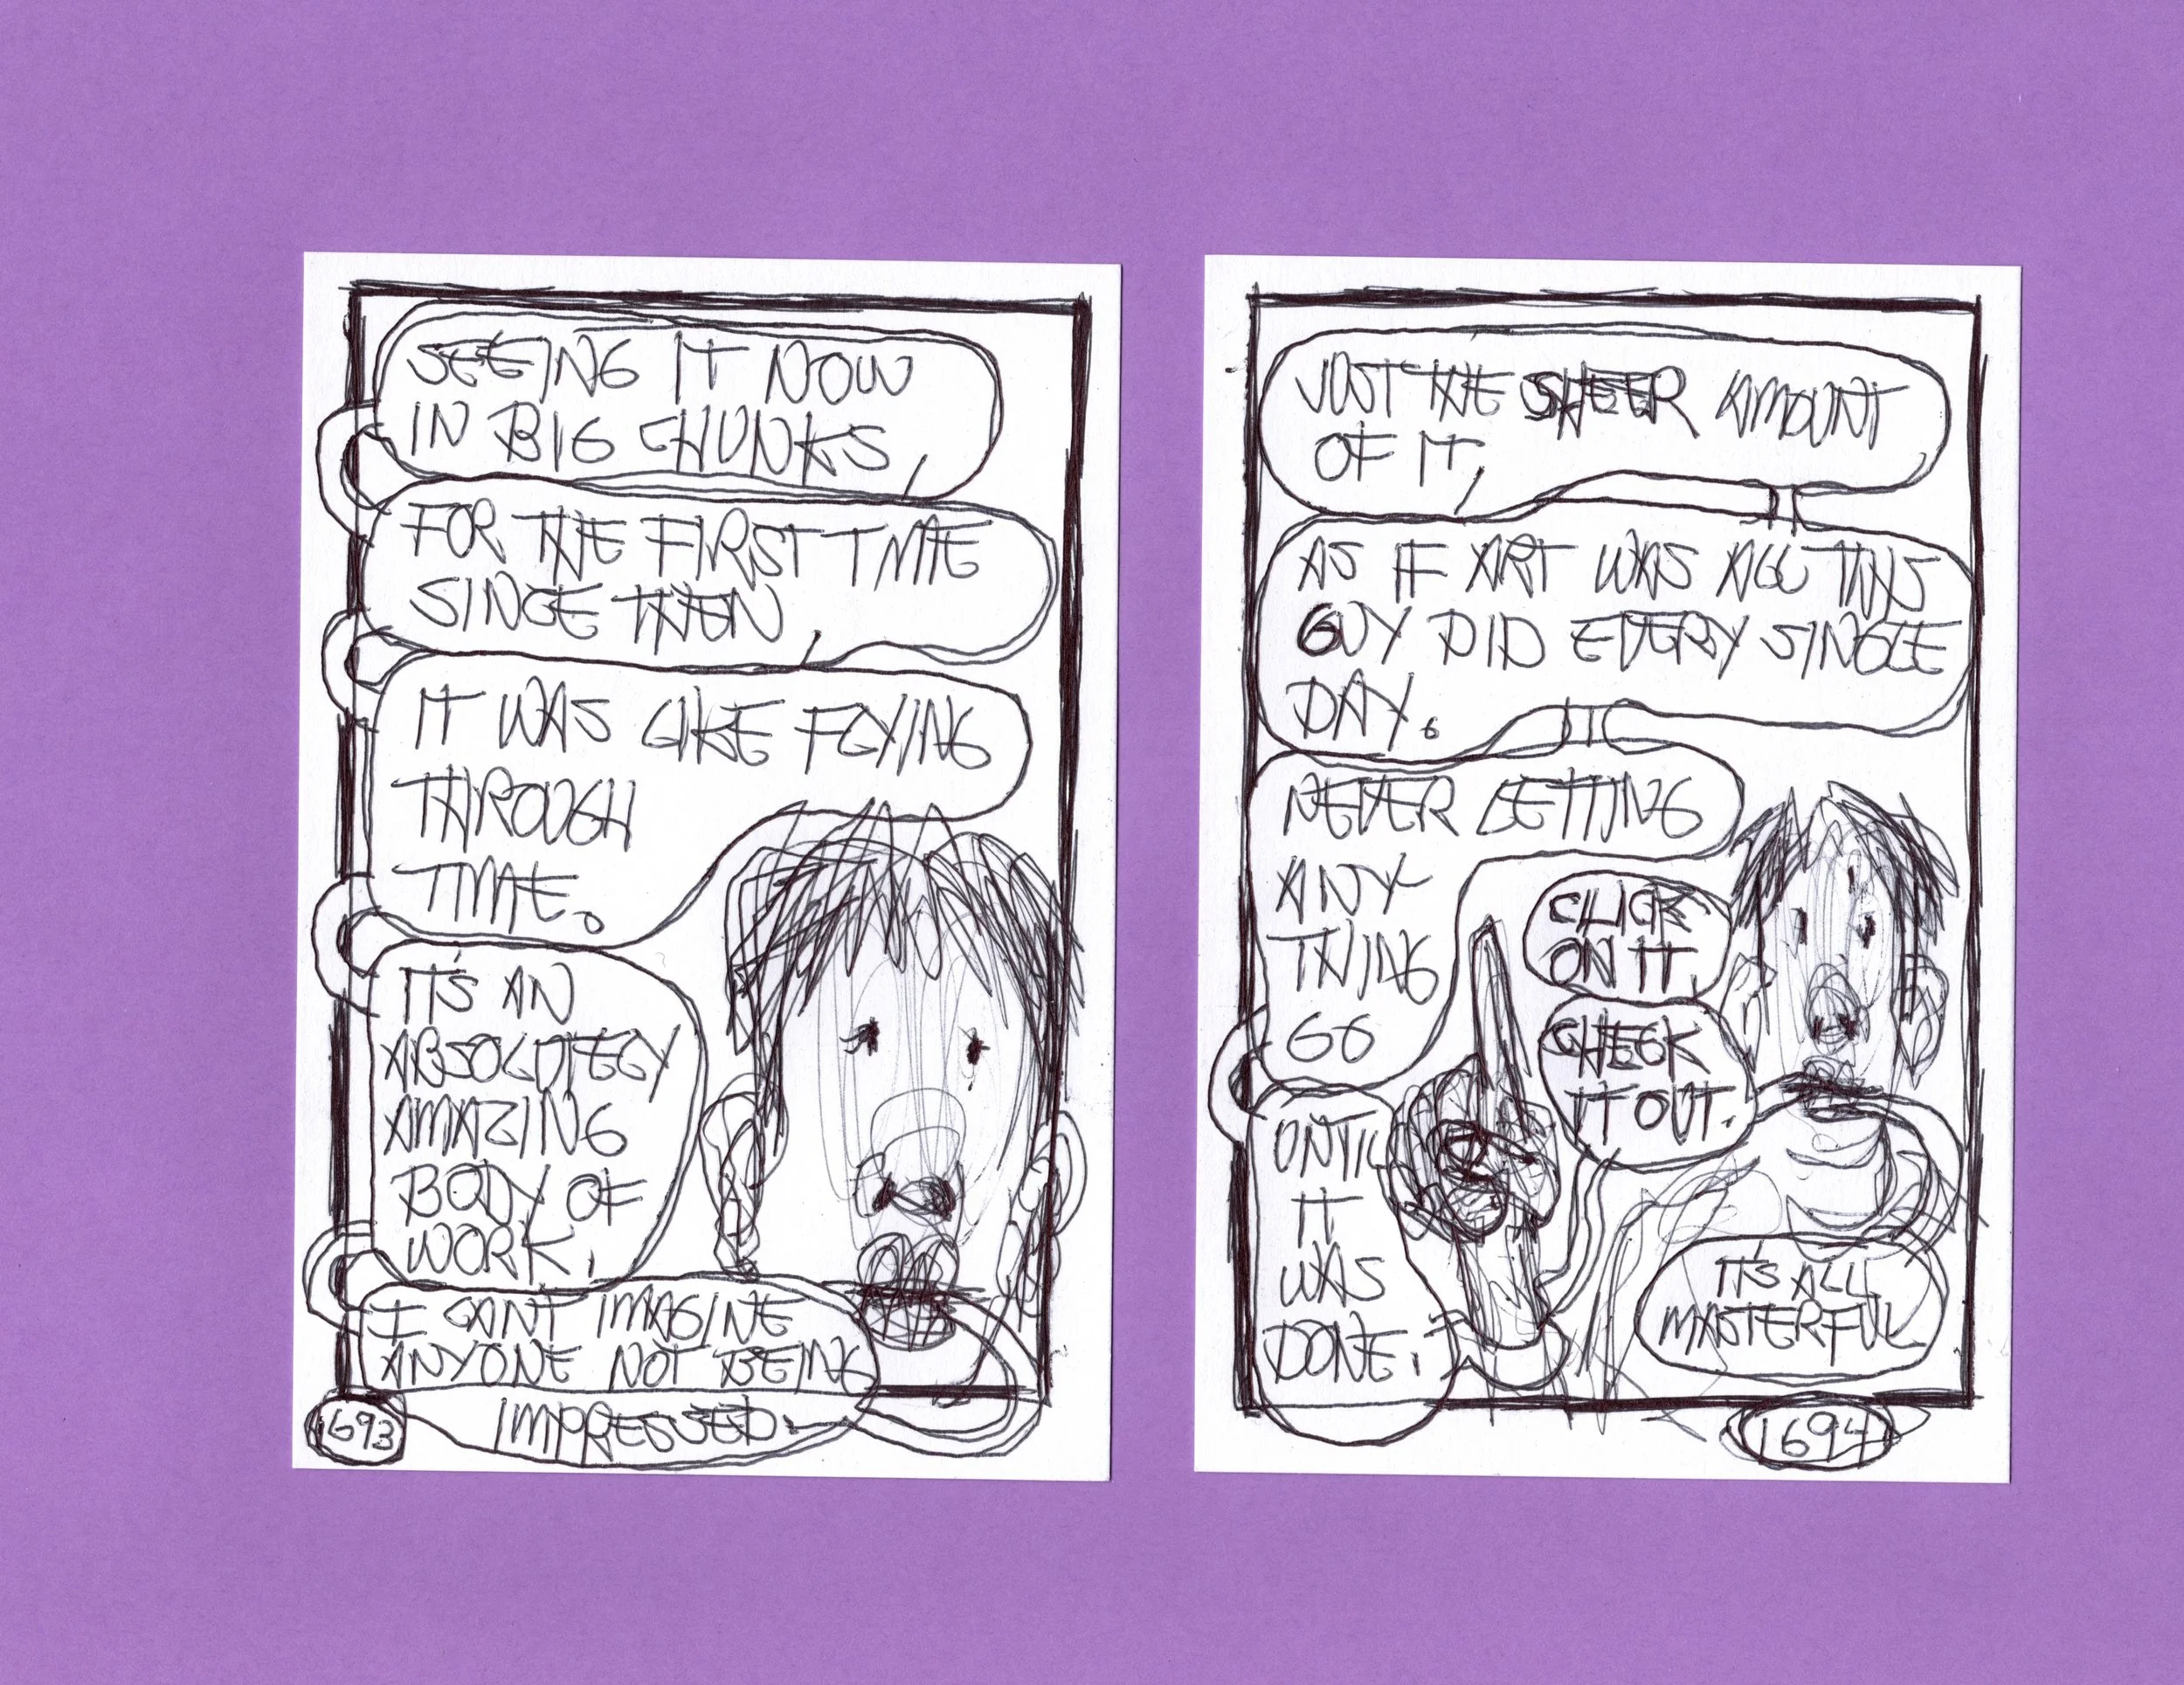 SEEING IT NOW
IN BIG CHUNKS,
FOR THE FIRST TIME
SINCE THEN,
IT WAS LIKE FLYING
THROUGH
TIME.
IT'S AN
ABSOLUTELY
AMAZING
BODY OF
WORK.
I CAN'T IMAGINE
ANYONE NOT BEING
IMPRESSED.
1693
JUST THE SHEER AMOUNT
OF IT,
AS IF ART WAS ALL THIS
GUY DID EVERY SINGLE
DAY.
NEVER LETTING
ANY-
THING
GO
UNTIL
IT
WAS
DONE.
CLICK
ON IT.
CHECK
IT OUT.
IT'S ALL
MASTERFUL
1694